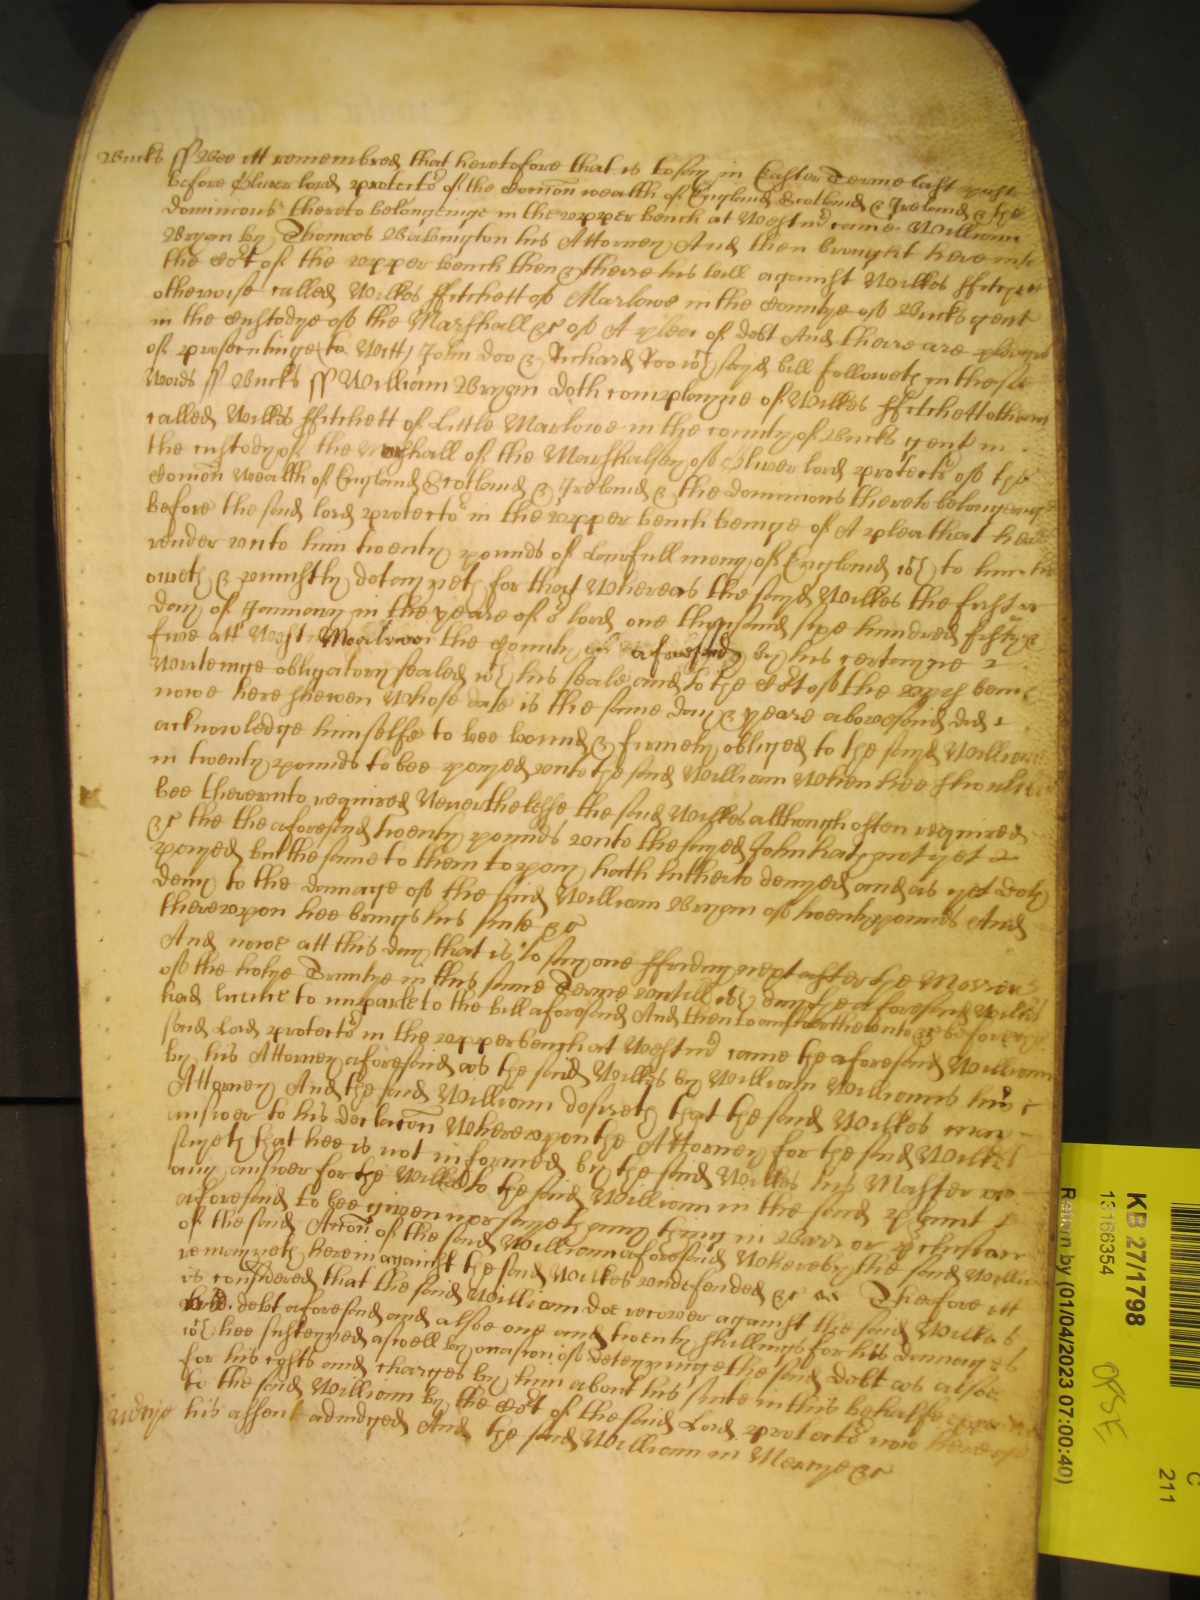 Bucks ss Bee itt remembred that heretofore that is to say in Easter Terme last past
before Oliver lord protector of the Comon wealth of England Scotland & Ireland & the
dominions thereto belonginge in the upper bench at Westmr came William
Bryan by Thomas Babington his Attorney And then brought here into
the Cort of the upper bench then & there his bill against Wilkes ffitchett
otherwise called Wilkes ffitchett of Marlowe in the County of Bucks gent
in the Custodye of the Marshall &c of A plea of debt And there are pledges
of prosecutinge (to Witt) John Doo & Richard Roo wch sayd bill followeth in these
Words ss Bucks ss William Bryan doth complayne of Wilkes ffitchett otherwise
called Wilkes ffitchett of Little Marlowe in the county of Bucks gent in
the custody of the Marshall of the Marshalsey of Oliver lord protector of the
Comon Wealth of England Scotland & Ireland & the dominions thereto belonginge
before the said lord protector in the upper bench beinge of A plea that hee
render unto him twenty pounds of lawfull mony of England wch to him hee
oweth & uniustly detayneth for that Whereas the sayd Wilkes the first
day of January in the yeare of or lord one thousand sixe hundred fifty &
five att Westm in the County aforesaid by his certayne
Writeinge obligatory sealed wth his seale and to the Cort of the upper bench
nowe here shewen Whose date is the same day & yeare abovesaid did
acknowledge himselfe to bee bound & firmely obliged to the sayd William
in twenty pounds to bee payed unto the said William When hee should
bee thereunto required Neverthelesse the said Wilkes allthough often required
&c the the aforesaid twenty pounds unto the sayed John hath not yet
payed but the same to them to pay hath hitherto denyed and as yet doth
deny to the damage of the said William Bryan of twenty pounds And
thereupon hee brings his suite &c
And nowe att this day that is to say one ffriday next after the Morrow
of the holye Trinitye in this same Terme untill wch day the aforesaid Wilkes
had licence to imparle to the bill aforesaid And then to answer thereunto &c before the
said Lord protector in the upper bench at Westmr came the aforesaid William
by his Attorney aforesaid as the said Wilkes by William Williams his
Attorney And the said William desireth that the said Wilkes may
answer to his declaracon Whereupon the Attorney for the said Wilkes
sayeth that hee is not informed by the said Wilkes his Master of
any answer for the Wilkes to the said William in the said plaint
aforesaid to bee given nor sayeth any thing in Barr or preclusion
of the said Accon of the said William aforesaid Whereby the said William
remayneth herein against the said Wilkes undefended &c Therefore itt
is considered that the said William doe recover against the said Wilkes
his debt aforesaid and alsoe one and twenty shillings for his damages
wch hee susteyned aswell by occasion of deteyninge the said debt as alsoe
for his costs and charges by him about his suite in this behalfe expended
to the said William by the Cort of the said Lord protector now here of
his assent adiudged And the said William in Mercye &c
KB 27/1798
13166354
Return by (01/04/2023 07:00:40)
C
211